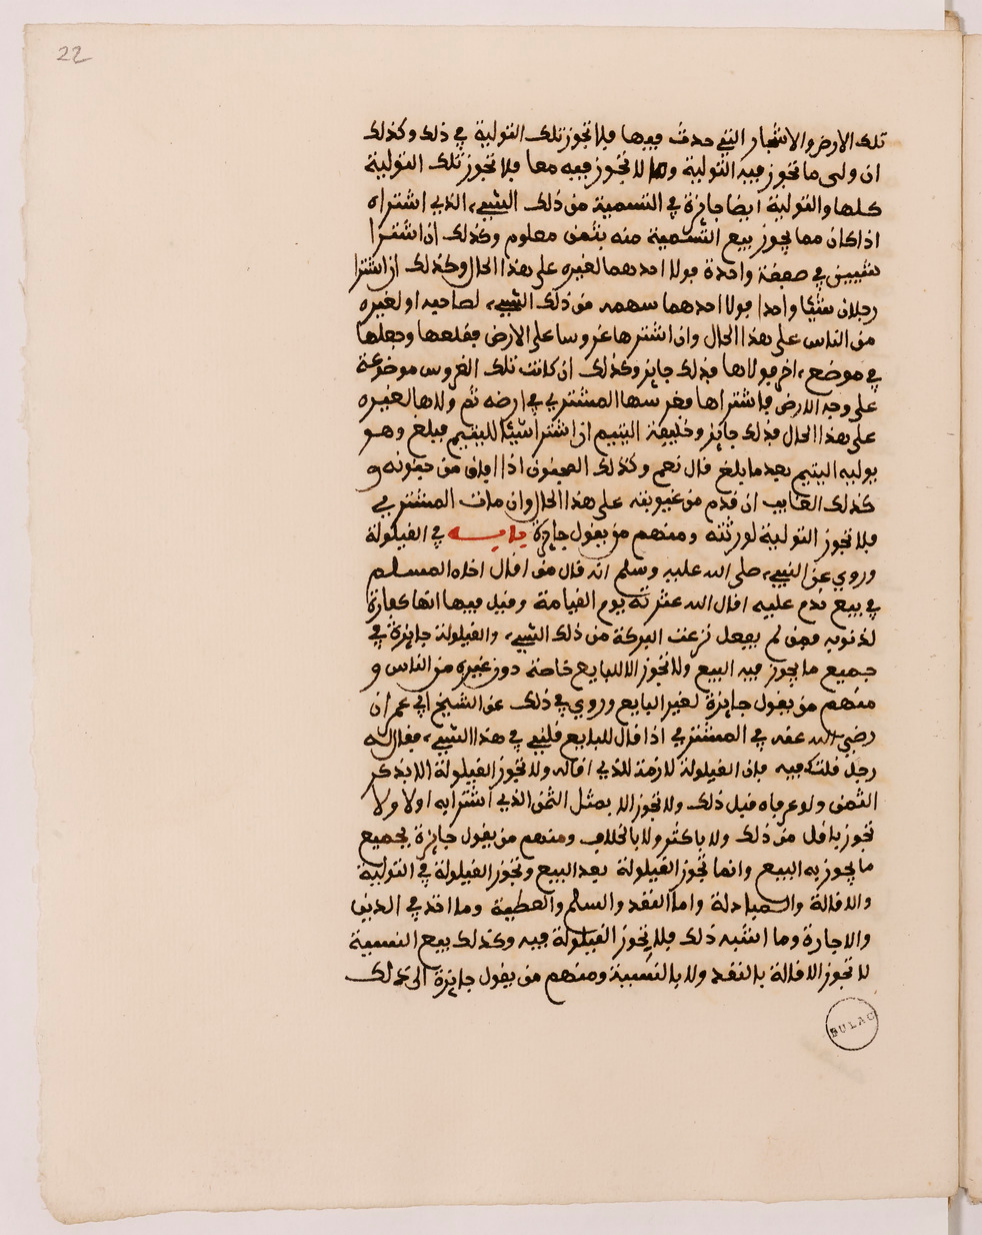 22
تلك الارض والاشجار التي حدث فيها فلا تجوز تلك التولية في ذلك وكذلك
ان ولى ما تجوز فيه التولية وما لا تجوز فيه معا فلا تجوز تلك التولية
كلها والتولية ايضا جايزة في التسمية من ذلك الشيء الذي اشتراه
اذا كان مما يجوز بيع التسمية منه بثمن معلوم وكذلك ان اشترا
شيين في صفقة واحدة فولا احدهما لغيره على هذا الحال وكذلك ان اشترا
رجلان شيئا واحدا فولا احدهما سهمه من ذلك الشيء لصاحبه او لغيره
من الناس على هذا الحال وان اشترها غروسا على الارض فقلعها وجعلها
في موضع ءاخر فولاها فذلك جايز وكذلك ان كانت تلك الغروس موضوعة
على وجه الارض فاشتراها فغرسها المشتري في ارضه ثم ولاها لغيره
على هذا الحال فذلك جايز وخليفة اليتيم ان اشترا شيئا لليتيم فبلغ وهو
يوليه اليتيم بعد ما بلغ قال نعم وكذلك المجنون اذا افاق من جنونه و
كذلك الغايب ان قدم من غيوبته على هذا الحال وان مات المشتري
فلا تجوز التولية لورثته ومنهم من يقول جايزة في القيلولة
وروي عن النبيء صلى الله عليه وسلم انه قال من اقال اخاه المسلم
في بيع ندم عليه اقال الله عثرته يوم القيامة وقيل فيها انها كفارة
لذنوبه فمن لم يفعل نزعت البركة من ذلك الشيء والقيلولة جايزة في
جميع ما يجوز فيه البيع ولا تجوز الا للبايع خاصة دون غيره من الناس و
منهم من يقول جايزة لغير البايع وروي في ذلك عن الشيخ ابي عمران
رضي الله عنه في المشتري اذا قال للبايع قلني في هذا الشيء فقال له
رجل قلتك فيه فان القيلولة لازمة للذي اقاله ولا تجوز القيلولة الا بذكر
الثمن ولو عرفاه قبل ذلك ولا تجوز الا بمثل الثمن الذي اشترا به اولا ولا
تجوز باقل من ذلك ولا باكثر ولا بالخلاف ومنهم من يقول جايزة بجميع
ما يجوز به البيع وانما تجوز القيلولة بعد البيع وتجوز القيلولة في التولية
والاقالة والمبادلة واما النقد والسلم والعطية وما اخذ في الدين
والاجارة وما اشبه ذلك فلا يجوز القيلولة فيه وكذلك بيع النسية
لا تجوز الاقالة بالنقد ولا بالنسية ومنهم من يقول جايزة الى ذلك
BULAC